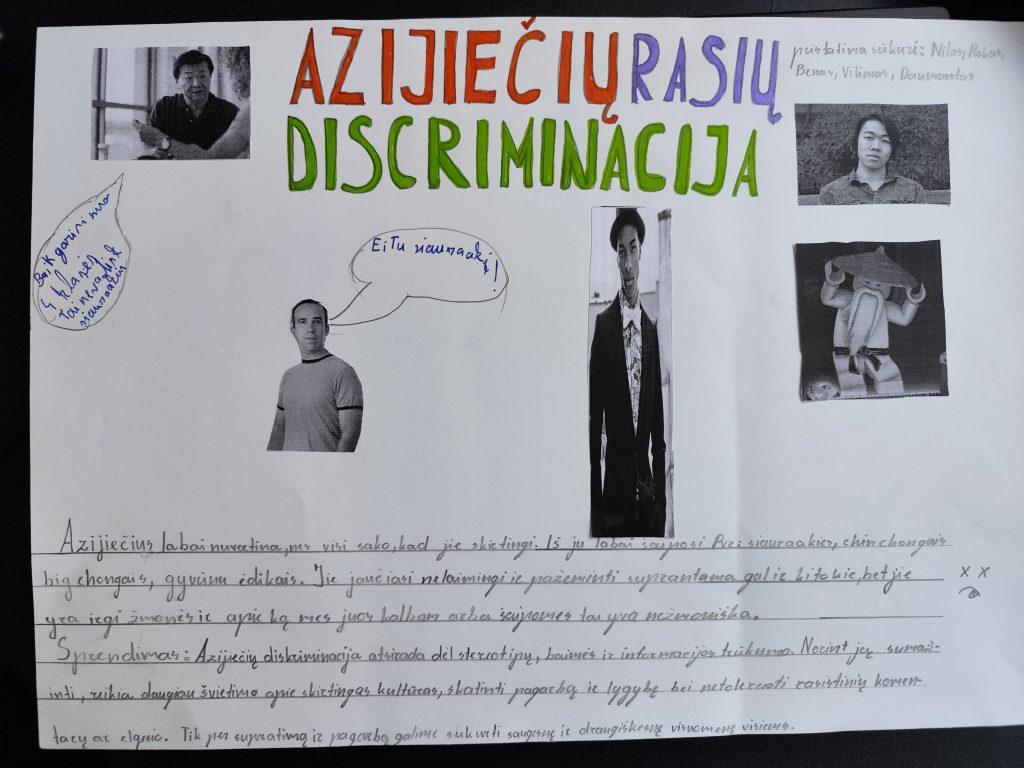 AZIJIEČIŲ RASIŲ
DISCRIMINACIJA
pristatima sukūrė: Nilas, Rokas,
Benas, Vilimas, Daumantas
Ei Tu siauraaki!
Azijiečius labai nuvertina, nes visi sako, kad jie skirtingi. Iš jų labai šaiposi Pvz: siauraakies, chin chongais
big chongais, gyvūnų ėdikais. Jie jaučiasi nelaimingi ir pažeminti suprantama gal ir kitokie, bet jie
yra irgi žmonės ir apie ką mes juos kalbam arba šaipomes tai yra nežmoniška.
Sprendimas: Azijiečių diskriminacija atsirado dėl stereotipų, baimės ir informacijos trūkumo. Norint ją sumaž-
inti, reikia daugiau švietimo apie skirtingas kultūras, skatinti pagarbą ir lygybę bei netoleruoti rasistinių komen-
tarų ar elgesio. Tik per supratimą ir pagarbą galime sukurti saugesnę ir draugiškesnę visuomenę visiems.